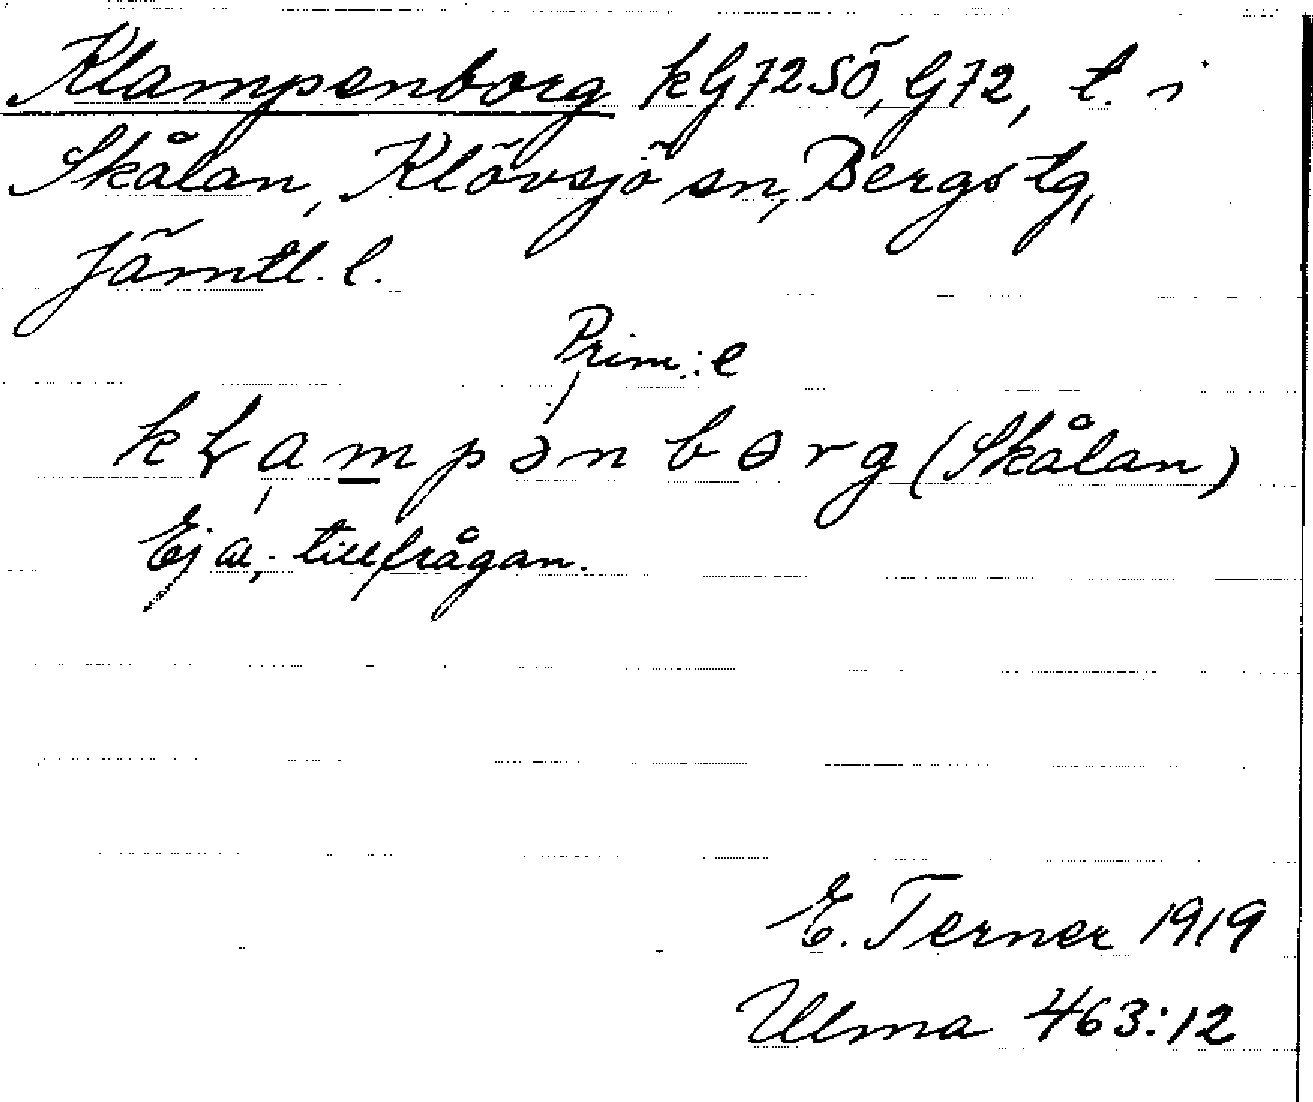 Klampenborg kG72SÖ, G72, t. i
Skålan, Klövsjö sn, Bergs tg,
Jämtl. l.
Prim.: e
kɽam̲pənbɵrg (Skålan)
Ej a, tillfrågan.
E. Terner 1919
Ulma 463:12